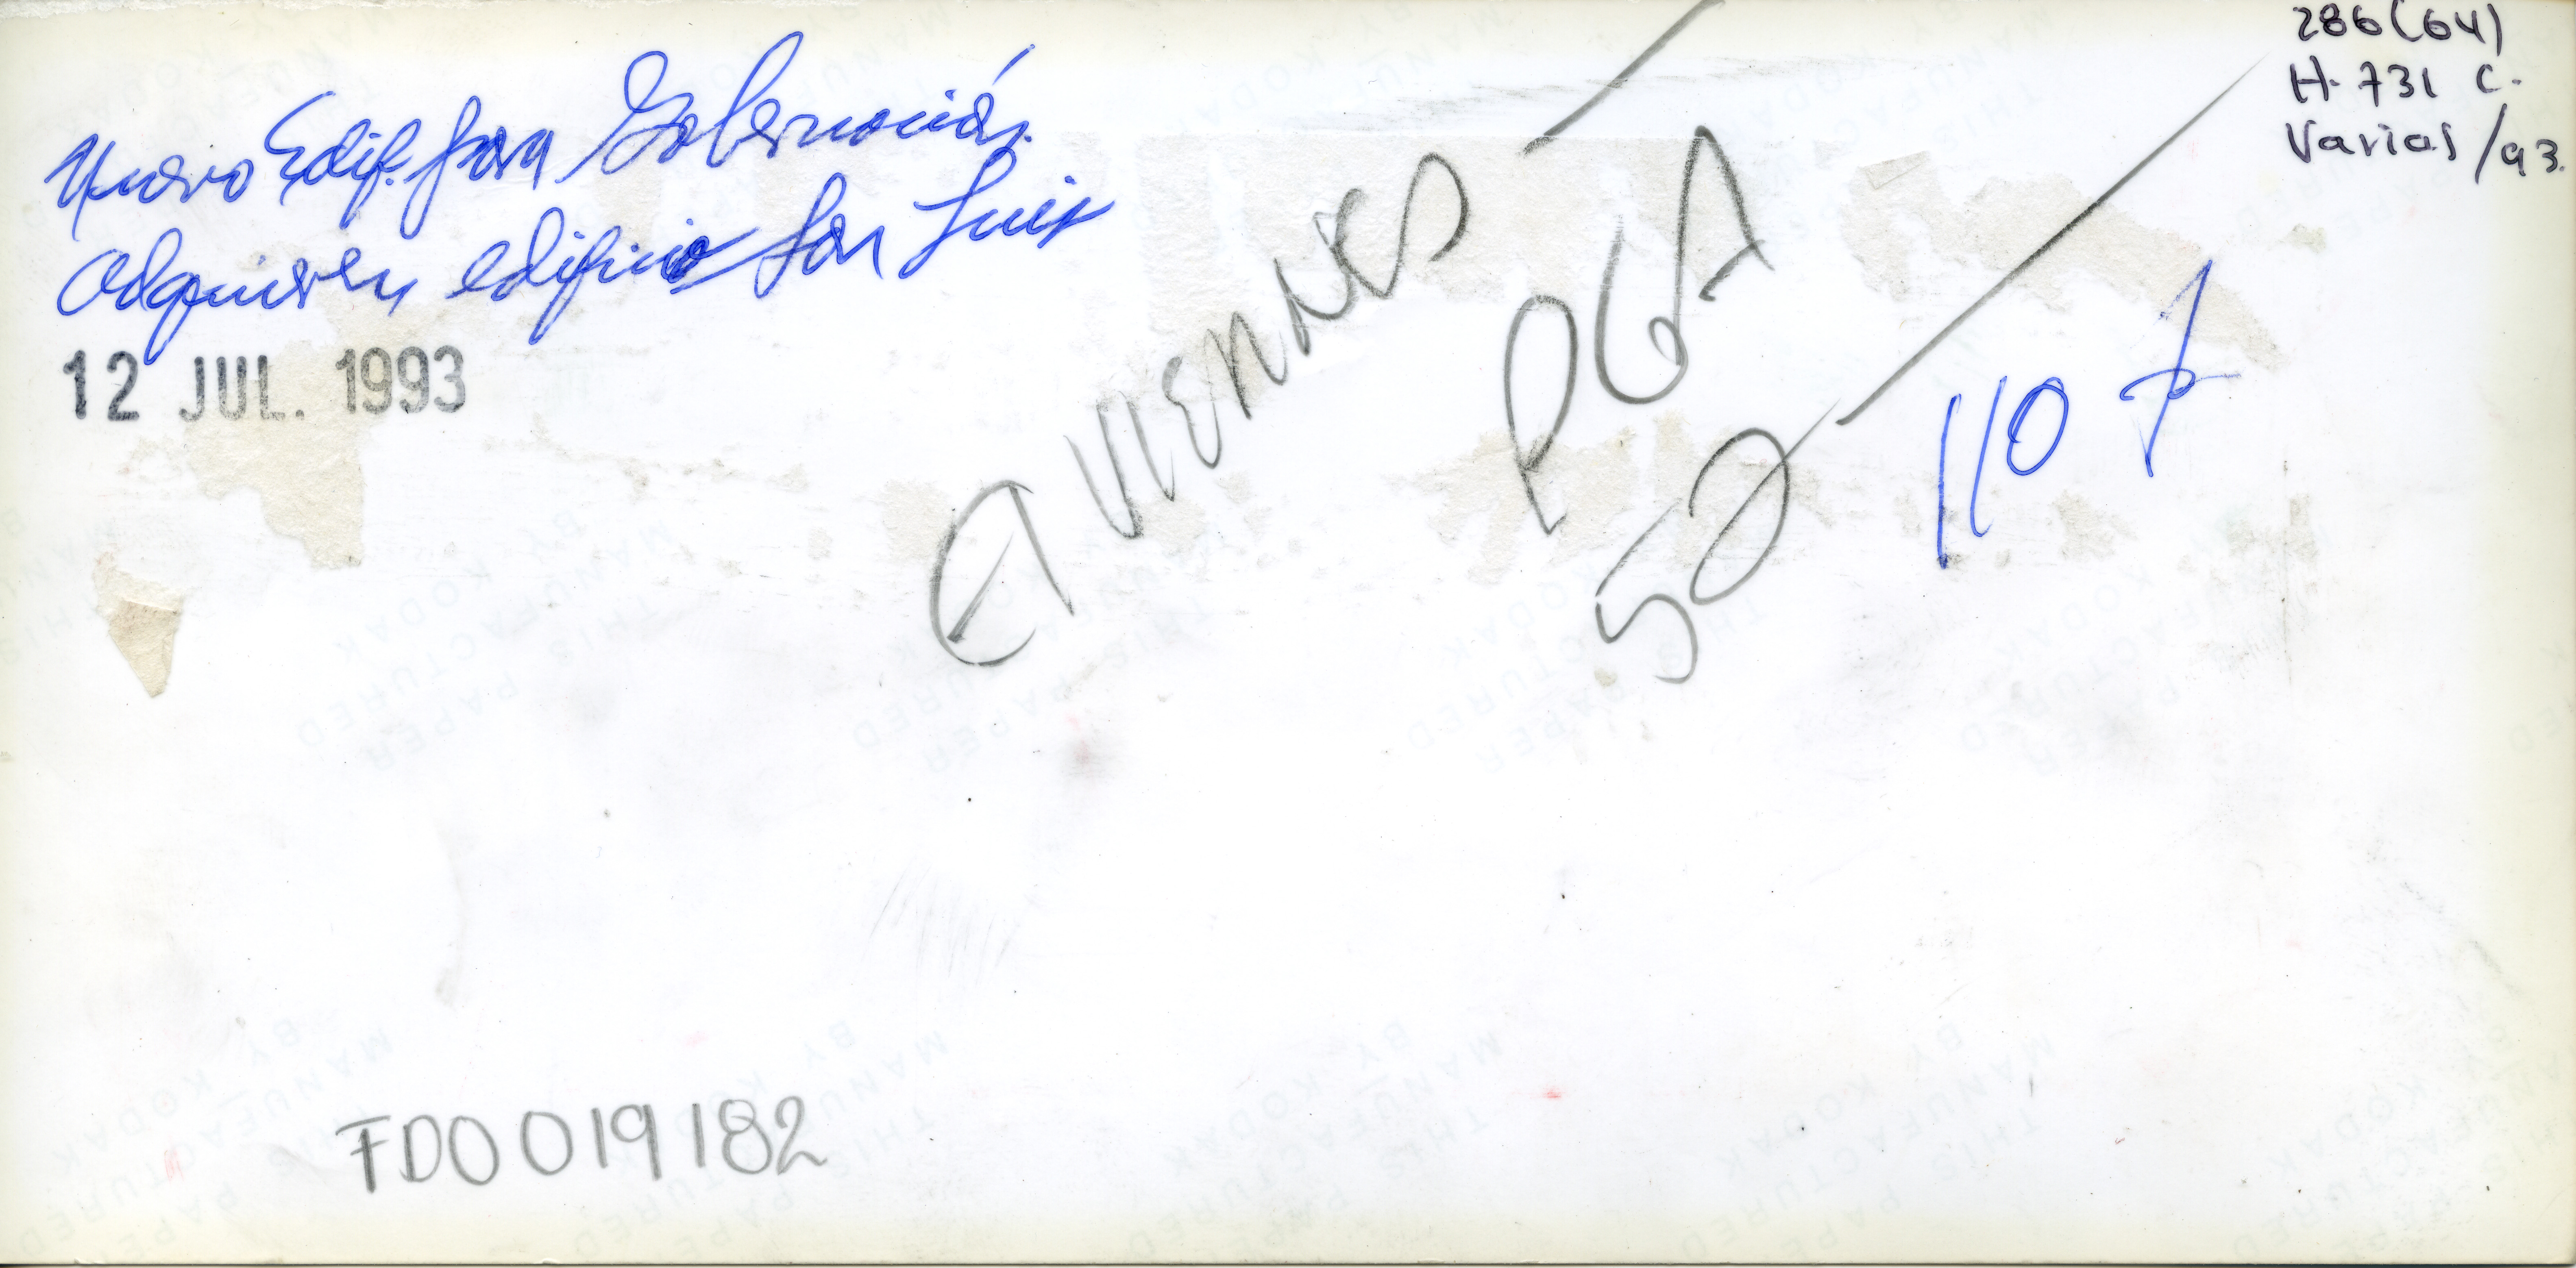 286(64)
H. 731 C.
Varias/93.
Nuevo Edif. para Gobernación.
Adquieren edificio San Luis
12 JUL. 1993
VIERNES
PGA
52
110
FD0019182
THIS PAPER
MANUFACTURED
BY KODAK